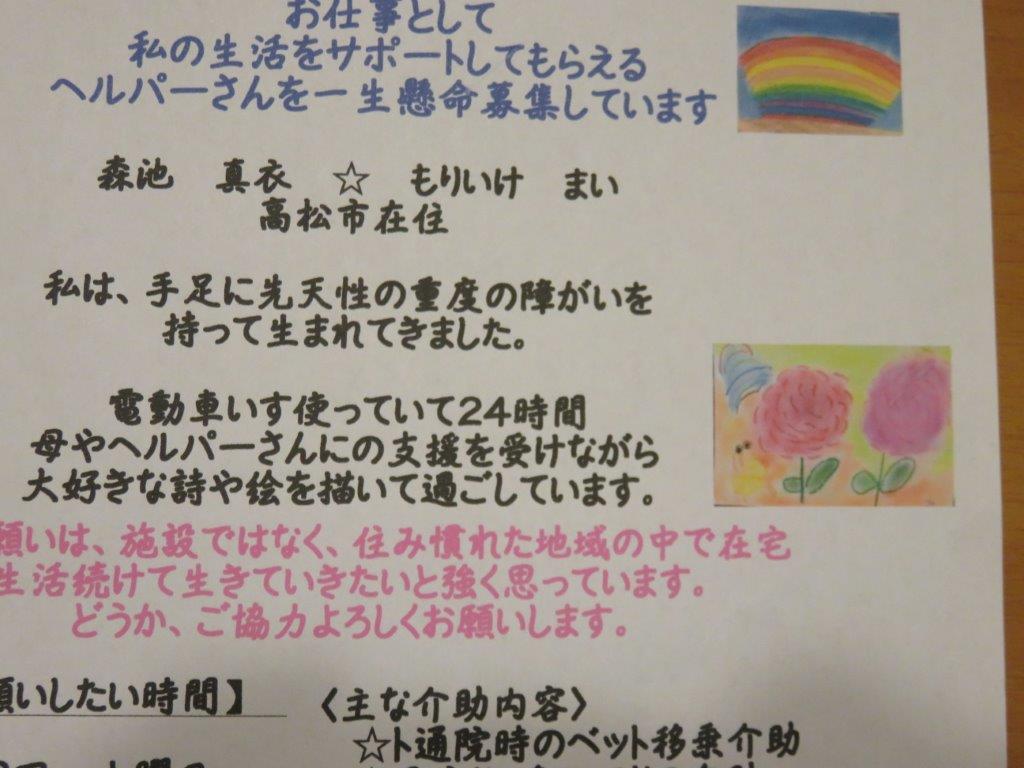 お仕事として
私の生活をサポートしてもらえる
ヘルパーさんを一生懸命募集しています
森池 真衣 ☆ もりいけ まい
高松市在住
私は、手足に先天性の重度の障がいを
持って生まれてきました。
電動車いす使っていて24時間
母やヘルパーさんにの支援を受けながら
大好きな詩や絵を描いて過ごしています。
願いは、施設ではなく、住み慣れた地域の中で在宅
生活続けて生きていきたいと強く思っています。
どうか、ご協力よろしくお願いします。
願いしたい時間】
〈主な介助内容〉
☆ト通院時のベット移乗介助